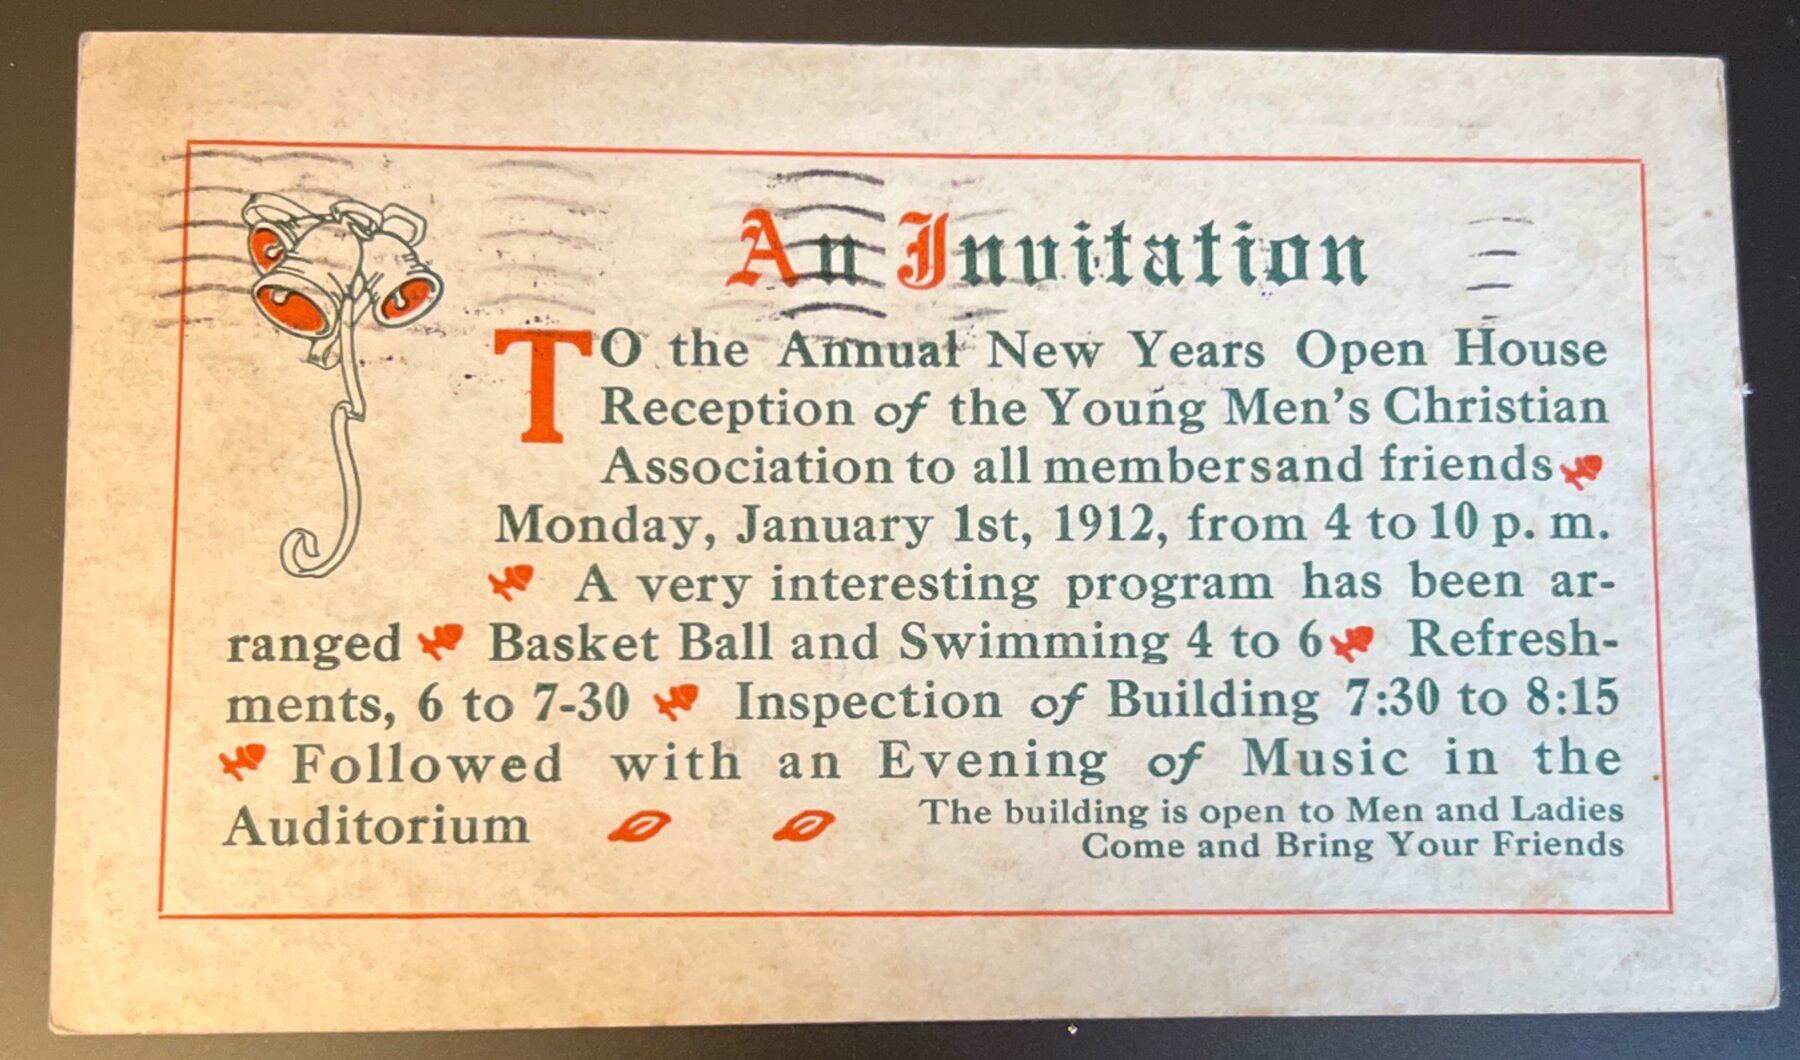 An Invitation
TO the Annual New Years Open House
Reception of the Young Men's Christian
Association to all members and friends
Monday, January 1st, 1912, from 4 to 10 p. m.
A very interesting program has been ar-
ranged Basket Ball and Swimming 4 to 6 Refresh-
ments, 6 to 7-30 Inspection of Building 7:30 to 8:15
Followed with an Evening of Music in the
Auditorium
The building is open to Men and Ladies
Come and Bring Your Friends